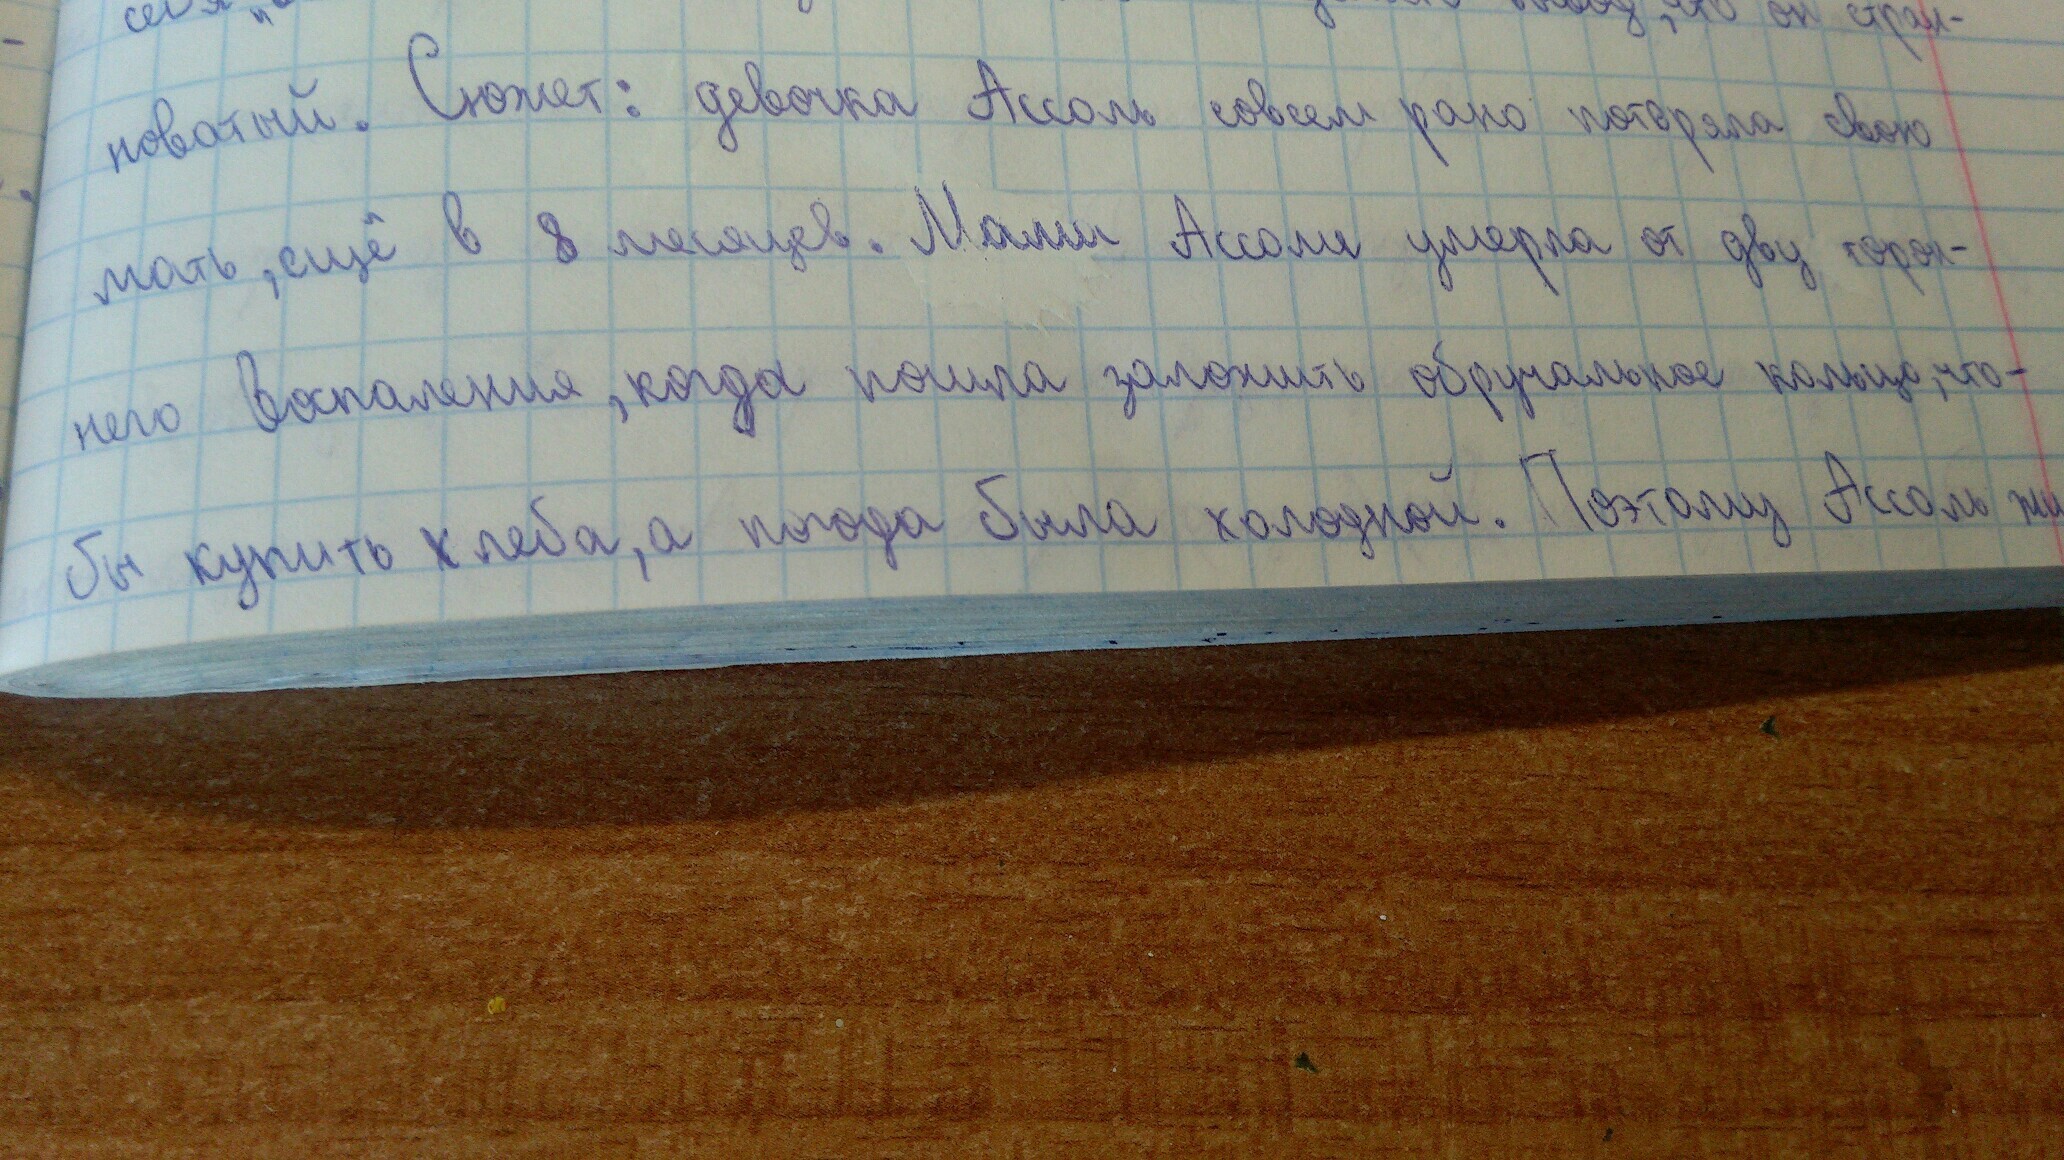 себя
что он стран-
новатый. Сюжет: девочка Ассоль совсем рано потеряла свою
мать, ещё в 8 месяцев. Мама Ассоли умерла от дву торон-
него воспаления, когда пошла заложить обручальное кольцо, что-
бы купить хлеба, а погода была холодной. Поэтому Ассоль жи